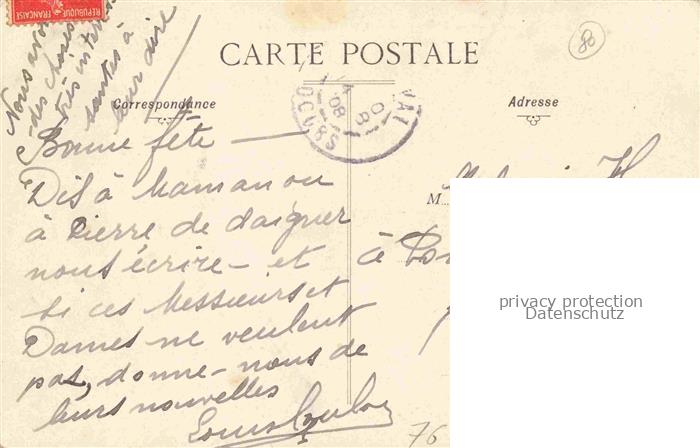 REPUBLIQUE FRANCAISE
CARTE POSTALE
Correspondance
Adresse
Nous avons
des choses
très intéres
santes à
leur dire
Bonne fête —
Dis à Maman ou
à Pierre de daigner
nous écrire — et
si ces Messieurs et
Dames ne veulent
pas, donne-nous de
leurs nouvelles
Louis
M
à
80
76
privacy protection
Datenschutz